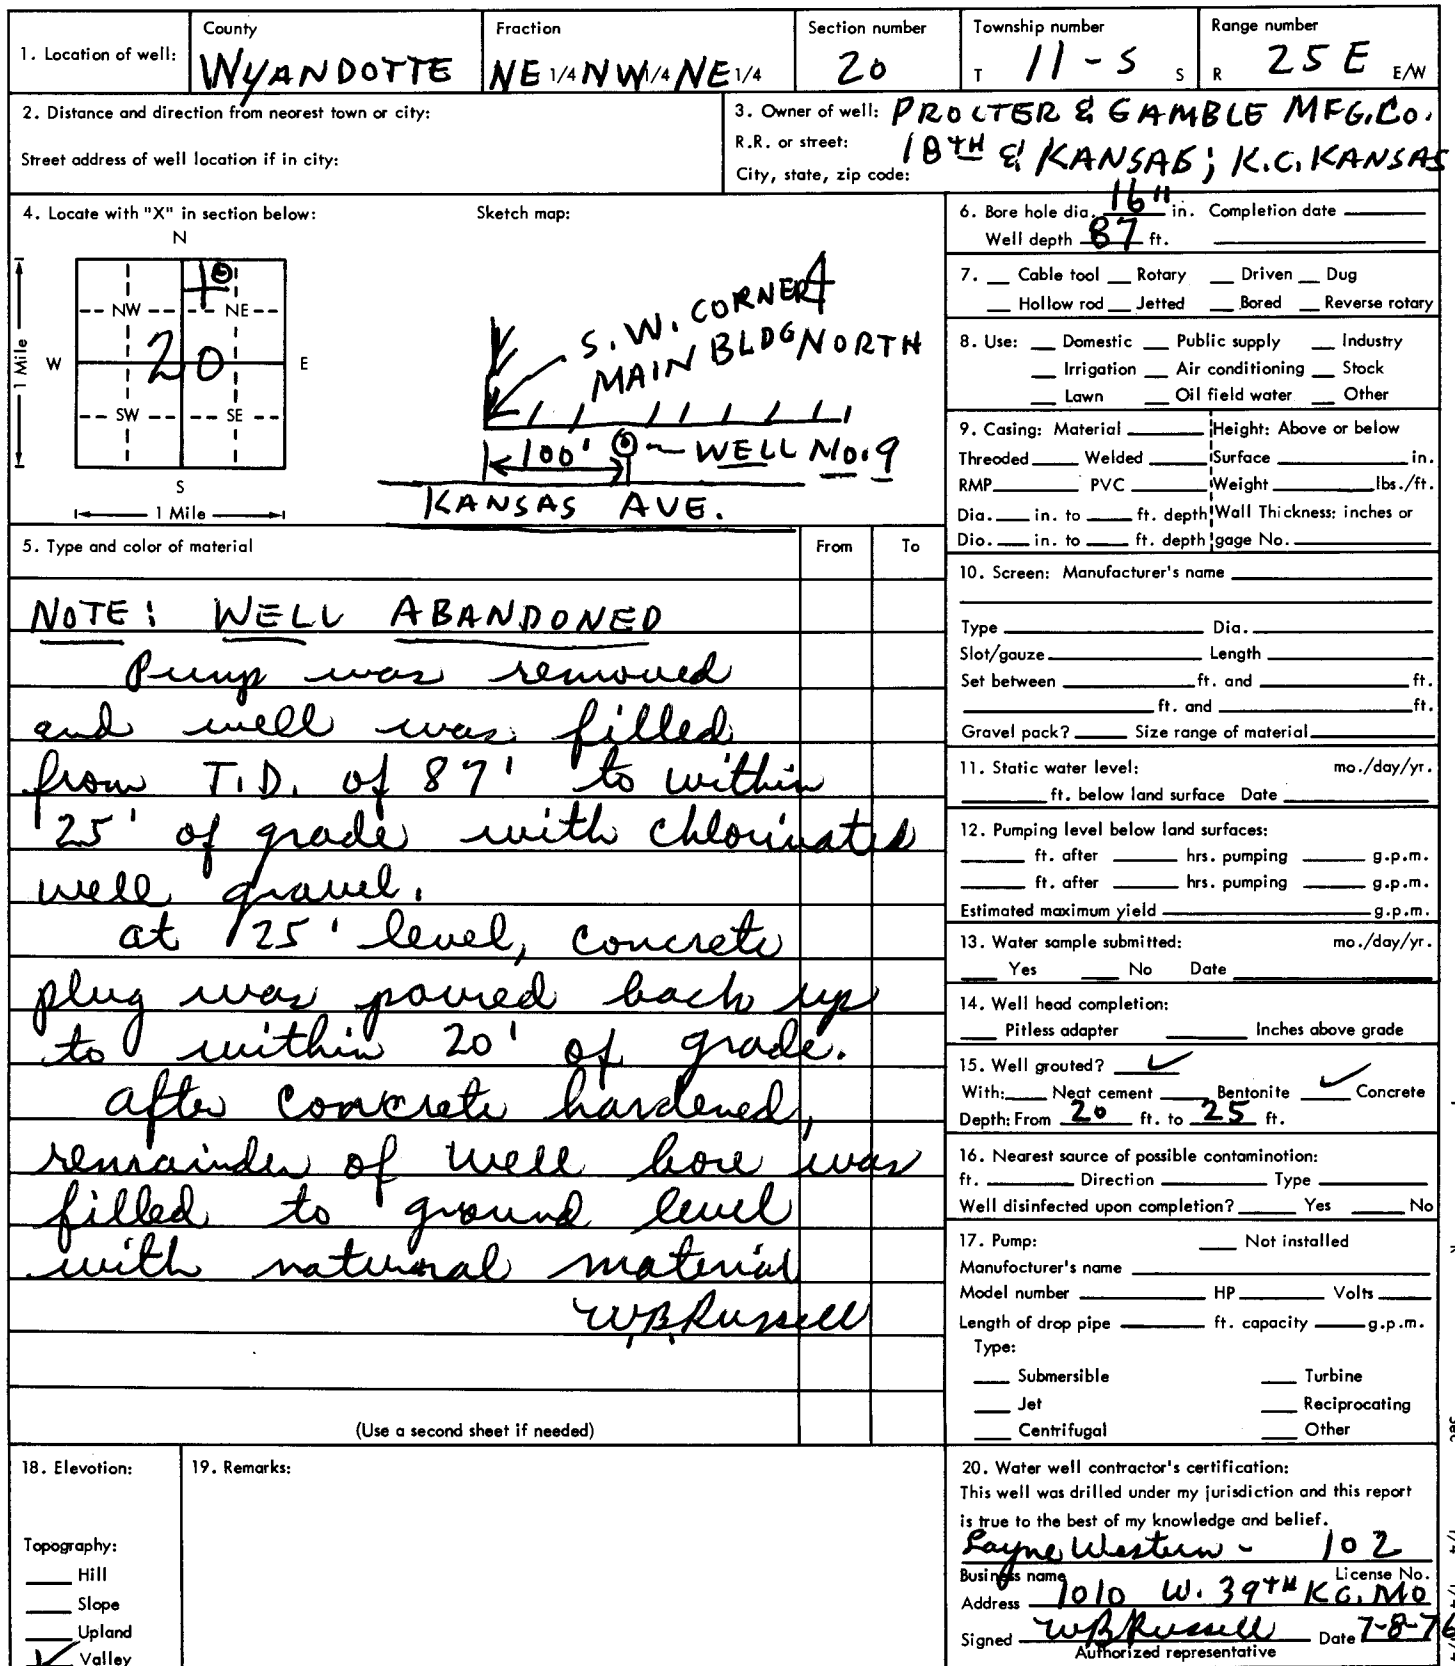 1. Location of well:
County
WYANDOTTE
Fraction
NE 1/4 NW 1/4 NE 1/4
Section number
20
Township number
T 11-S S
Range number
R 25E E/W
2. Distance and direction from nearest town or city:
Street address of well location if in city:
3. Owner of well: PROCTER & GAMBLE MFG. CO.
R.R. or street: 18TH & KANSAS; K.C. KANSAS
City, state, zip code:
4. Locate with "X" in section below:
N
NW NE
W 20 E
SW SE
S
1 Mile
1 Mile
Sketch map:
S.W. CORNER
MAIN BLDG
NORTH
100' WELL NO. 9
KANSAS AVE.
5. Type and color of material From To
NOTE: WELL ABANDONED
Pump was removed
and well was filled
from T.D. of 87' to within
25' of grade with chlorinated
well gravel.
at 25' level, concrete
plug was poured back up
to within 20' of grade.
After concrete hardened,
remainder of well bore was
filled to ground level
with natural material
W.B. Russell
(Use a second sheet if needed)
6. Bore hole dia. 16" in. Completion date
Well depth 87 ft.
7. Cable tool Rotary Driven Dug
Hollow rod Jetted Bored Reverse rotary
8. Use: Domestic Public supply Industry
Irrigation Air conditioning Stock
Lawn Oil field water Other
9. Casing: Material Height: Above or below
Threaded Welded Surface in.
RMP PVC Weight lbs./ft.
Dia. in. to ft. depth Wall Thickness: inches or
Dia. in. to ft. depth gage No.
10. Screen: Manufacturer's name
Type Dia.
Slot/gauze Length
Set between ft. and ft.
ft. and ft.
Gravel pack? Size range of material
11. Static water level: mo./day/yr.
ft. below land surface Date
12. Pumping level below land surfaces:
ft. after hrs. pumping g.p.m.
ft. after hrs. pumping g.p.m.
Estimated maximum yield g.p.m.
13. Water sample submitted: mo./day/yr.
Yes No Date
14. Well head completion:
Pitless adapter Inches above grade
15. Well grouted? ✓
With: Neat cement Bentonite ✓ Concrete
Depth: From 20 ft. to 25 ft.
16. Nearest source of possible contamination:
ft. Direction Type
Well disinfected upon completion? Yes No
17. Pump: Not installed
Manufacturer's name
Model number HP Volts
Length of drop pipe ft. capacity g.p.m.
Type:
Submersible Turbine
Jet Reciprocating
Centrifugal Other
18. Elevation:
Topography:
Hill
Slope
Upland
✓ Valley
19. Remarks:
20. Water well contractor's certification:
This well was drilled under my jurisdiction and this report
is true to the best of my knowledge and belief.
Layne Western - 102
Business name License No.
Address 1010 W. 39TH K.C. MO
Signed W B Russell Date 7-8-76
Authorized representative